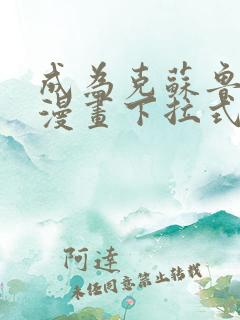 成為克蘇魯
漫畫下拉式
阿達
未經同意禁止轉載